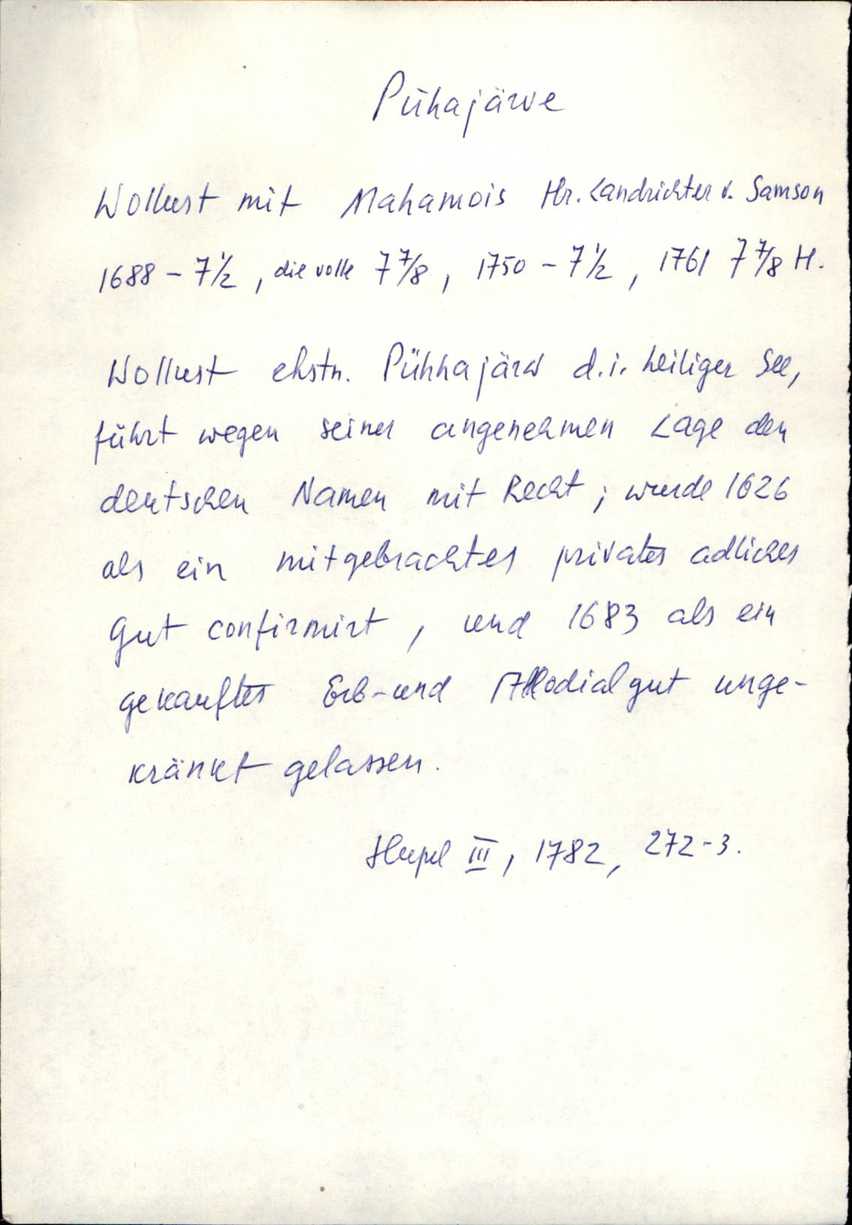 Pühajärve
Wollust mit Mahamois Hr. Landrichter v. Samson
1688 – 7 1/2, die volle 7 7/8, 1750 – 7 1/2, 1761 7 7/8 H.
Wollust ehstn. Pühhajärw d.i. heiliger See,
führt wegen seiner angenehmen Lage den
deutschen Namen mit Recht; wurde 1626
als ein mitgebrachtes privates adliches
Gut confirmirt, und 1683 als ein
gekauftes Erb- und Allodialgut unge-
kränkt gelassen.
Hupel III, 1782, 272-3.